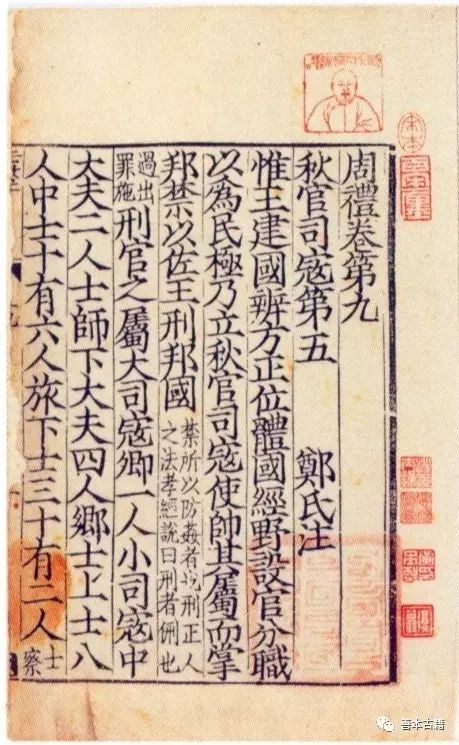 周禮卷第九
秋官司寇第五 鄭氏注
惟王建國辨方正位體國經野設官分職
以為民極乃立秋官司寇使帥其屬而掌
邦禁以佐王刑邦國 禁所以防姦者也刑正人
之法孝經說曰刑者侀也
過出
罪施 刑官之屬大司寇卿一人小司寇中
大夫二人士師下大夫四人鄉士上士八
人中士十有六人旅下士三十有二人 士
察
宋本
善本古籍